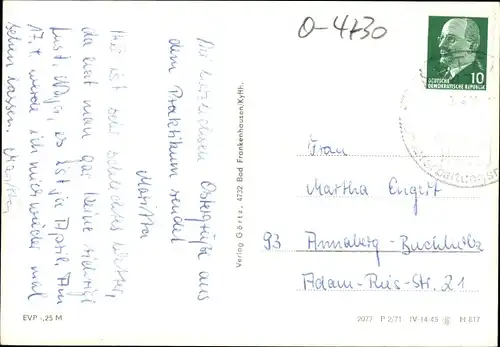 0-4730
Die herzlichsten Ostergrüße aus
dem Praktikum sendet
Maritta
Hier ist sehr schlechtes Wetter,
da hat man gar keine richtige
Lust. Naja, es ist ja April. Am
17.4. werde ich mich wieder mal
sehen lassen. Maritta
Verlag Görtz, 4732 Bad Frankenhausen/Kyffh.
10
DEUTSCHE
DEMOKRATISCHE REPUBLIK
Frau
Martha Engert
93 Annaberg-Buchholz
Adam-Ries-Str. 21
EVP -,25 M
2077 P 2/71 IV-14-45 H 817